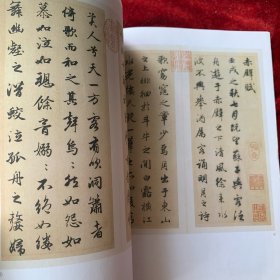 赤壁賦
壬戌之秋七月既望蘇子與客泛
舟遊于赤壁之下清風徐來水
波不興舉酒屬客誦明月之詩
歌窈窕之章少焉月出于東山
之上徘徊於斗牛之間白露橫江
美人兮天一方客有吹洞簫者
倚歌而和之其聲嗚〻然如怨如
慕如泣如訴餘音嫋〻不絕如縷
舞幽壑之潛蛟泣孤舟之嫠婦